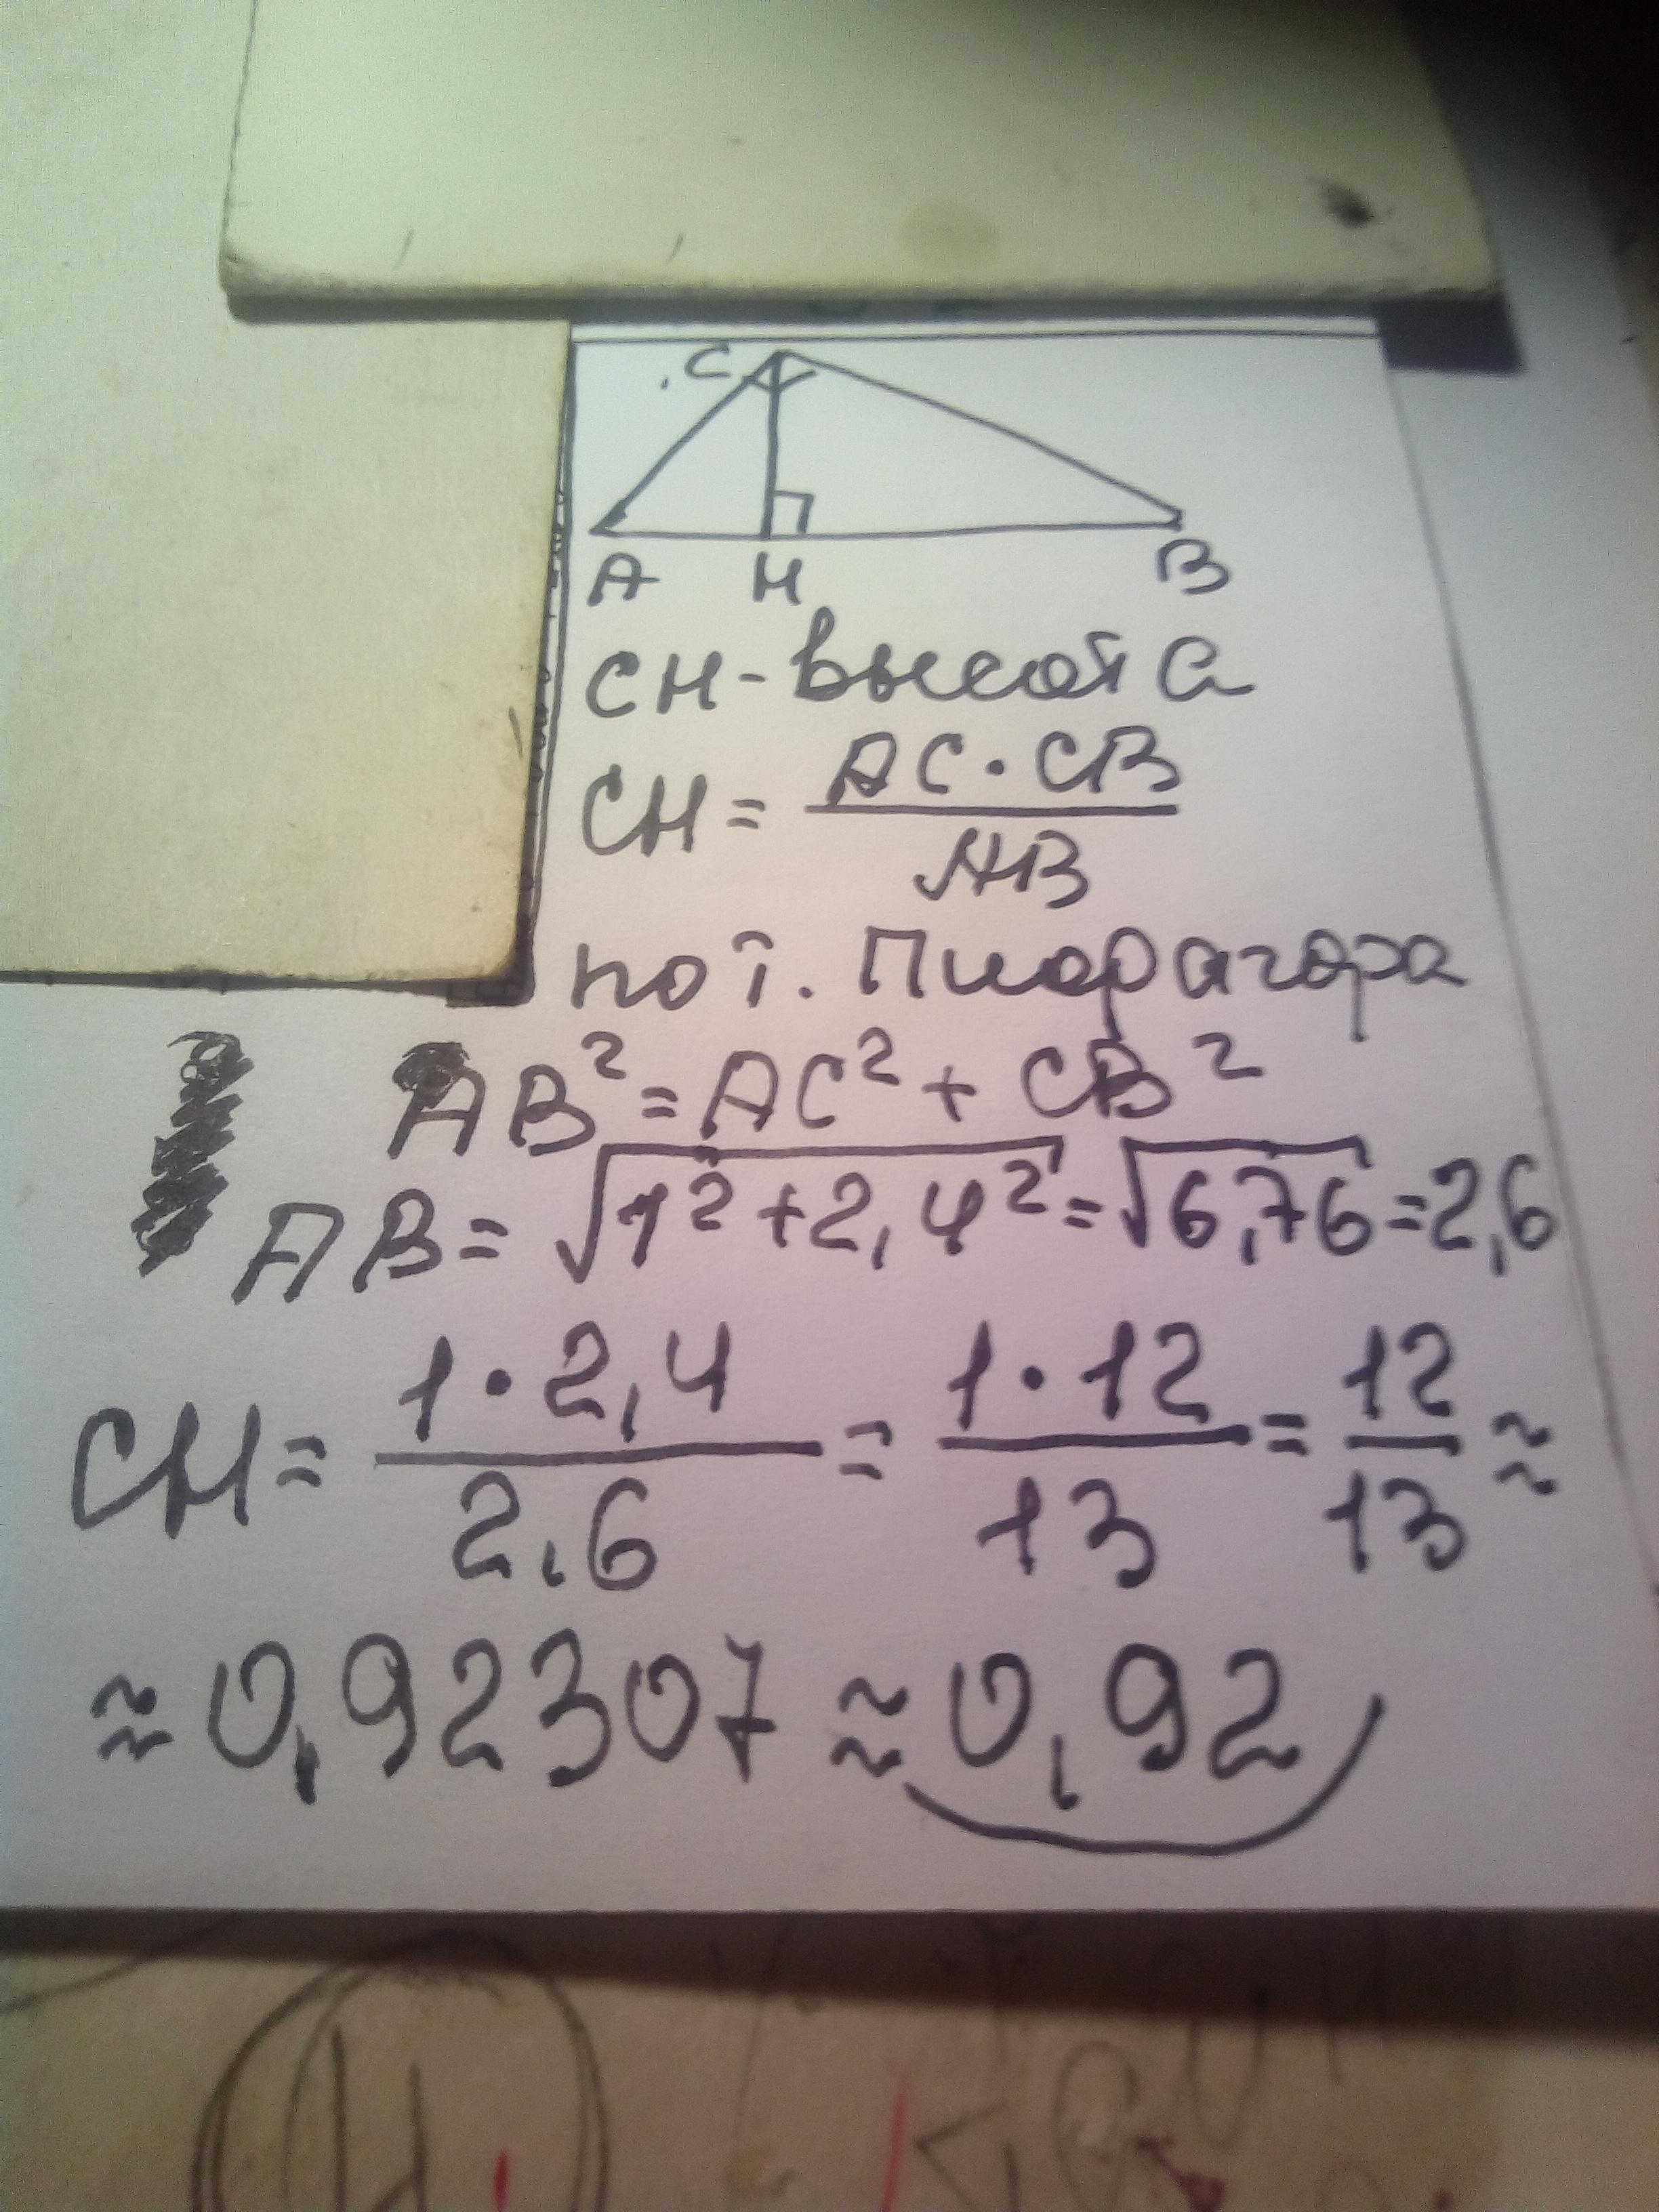 C
A H B
CH - высота
CH = AC · CB / AB
по т. Пифагора
AB² = AC² + CB²
AB = √1² + 2,4² = √6,76 = 2,6
CH = 1 · 2,4 / 2,6 = 1 · 12 / 13 = 12 / 13 ≈
≈ 0,92307 ≈ 0,92